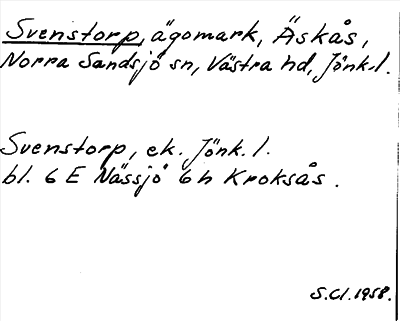 Svenstorp, ägomark, Äskås,
Norra Sandsjö sn, Västra hd, Jönk.l.
Svenstorp, ek. Jönk. l.
bl. 6 E Nässjö 6h Kroksås.
S.Cl. 1958.